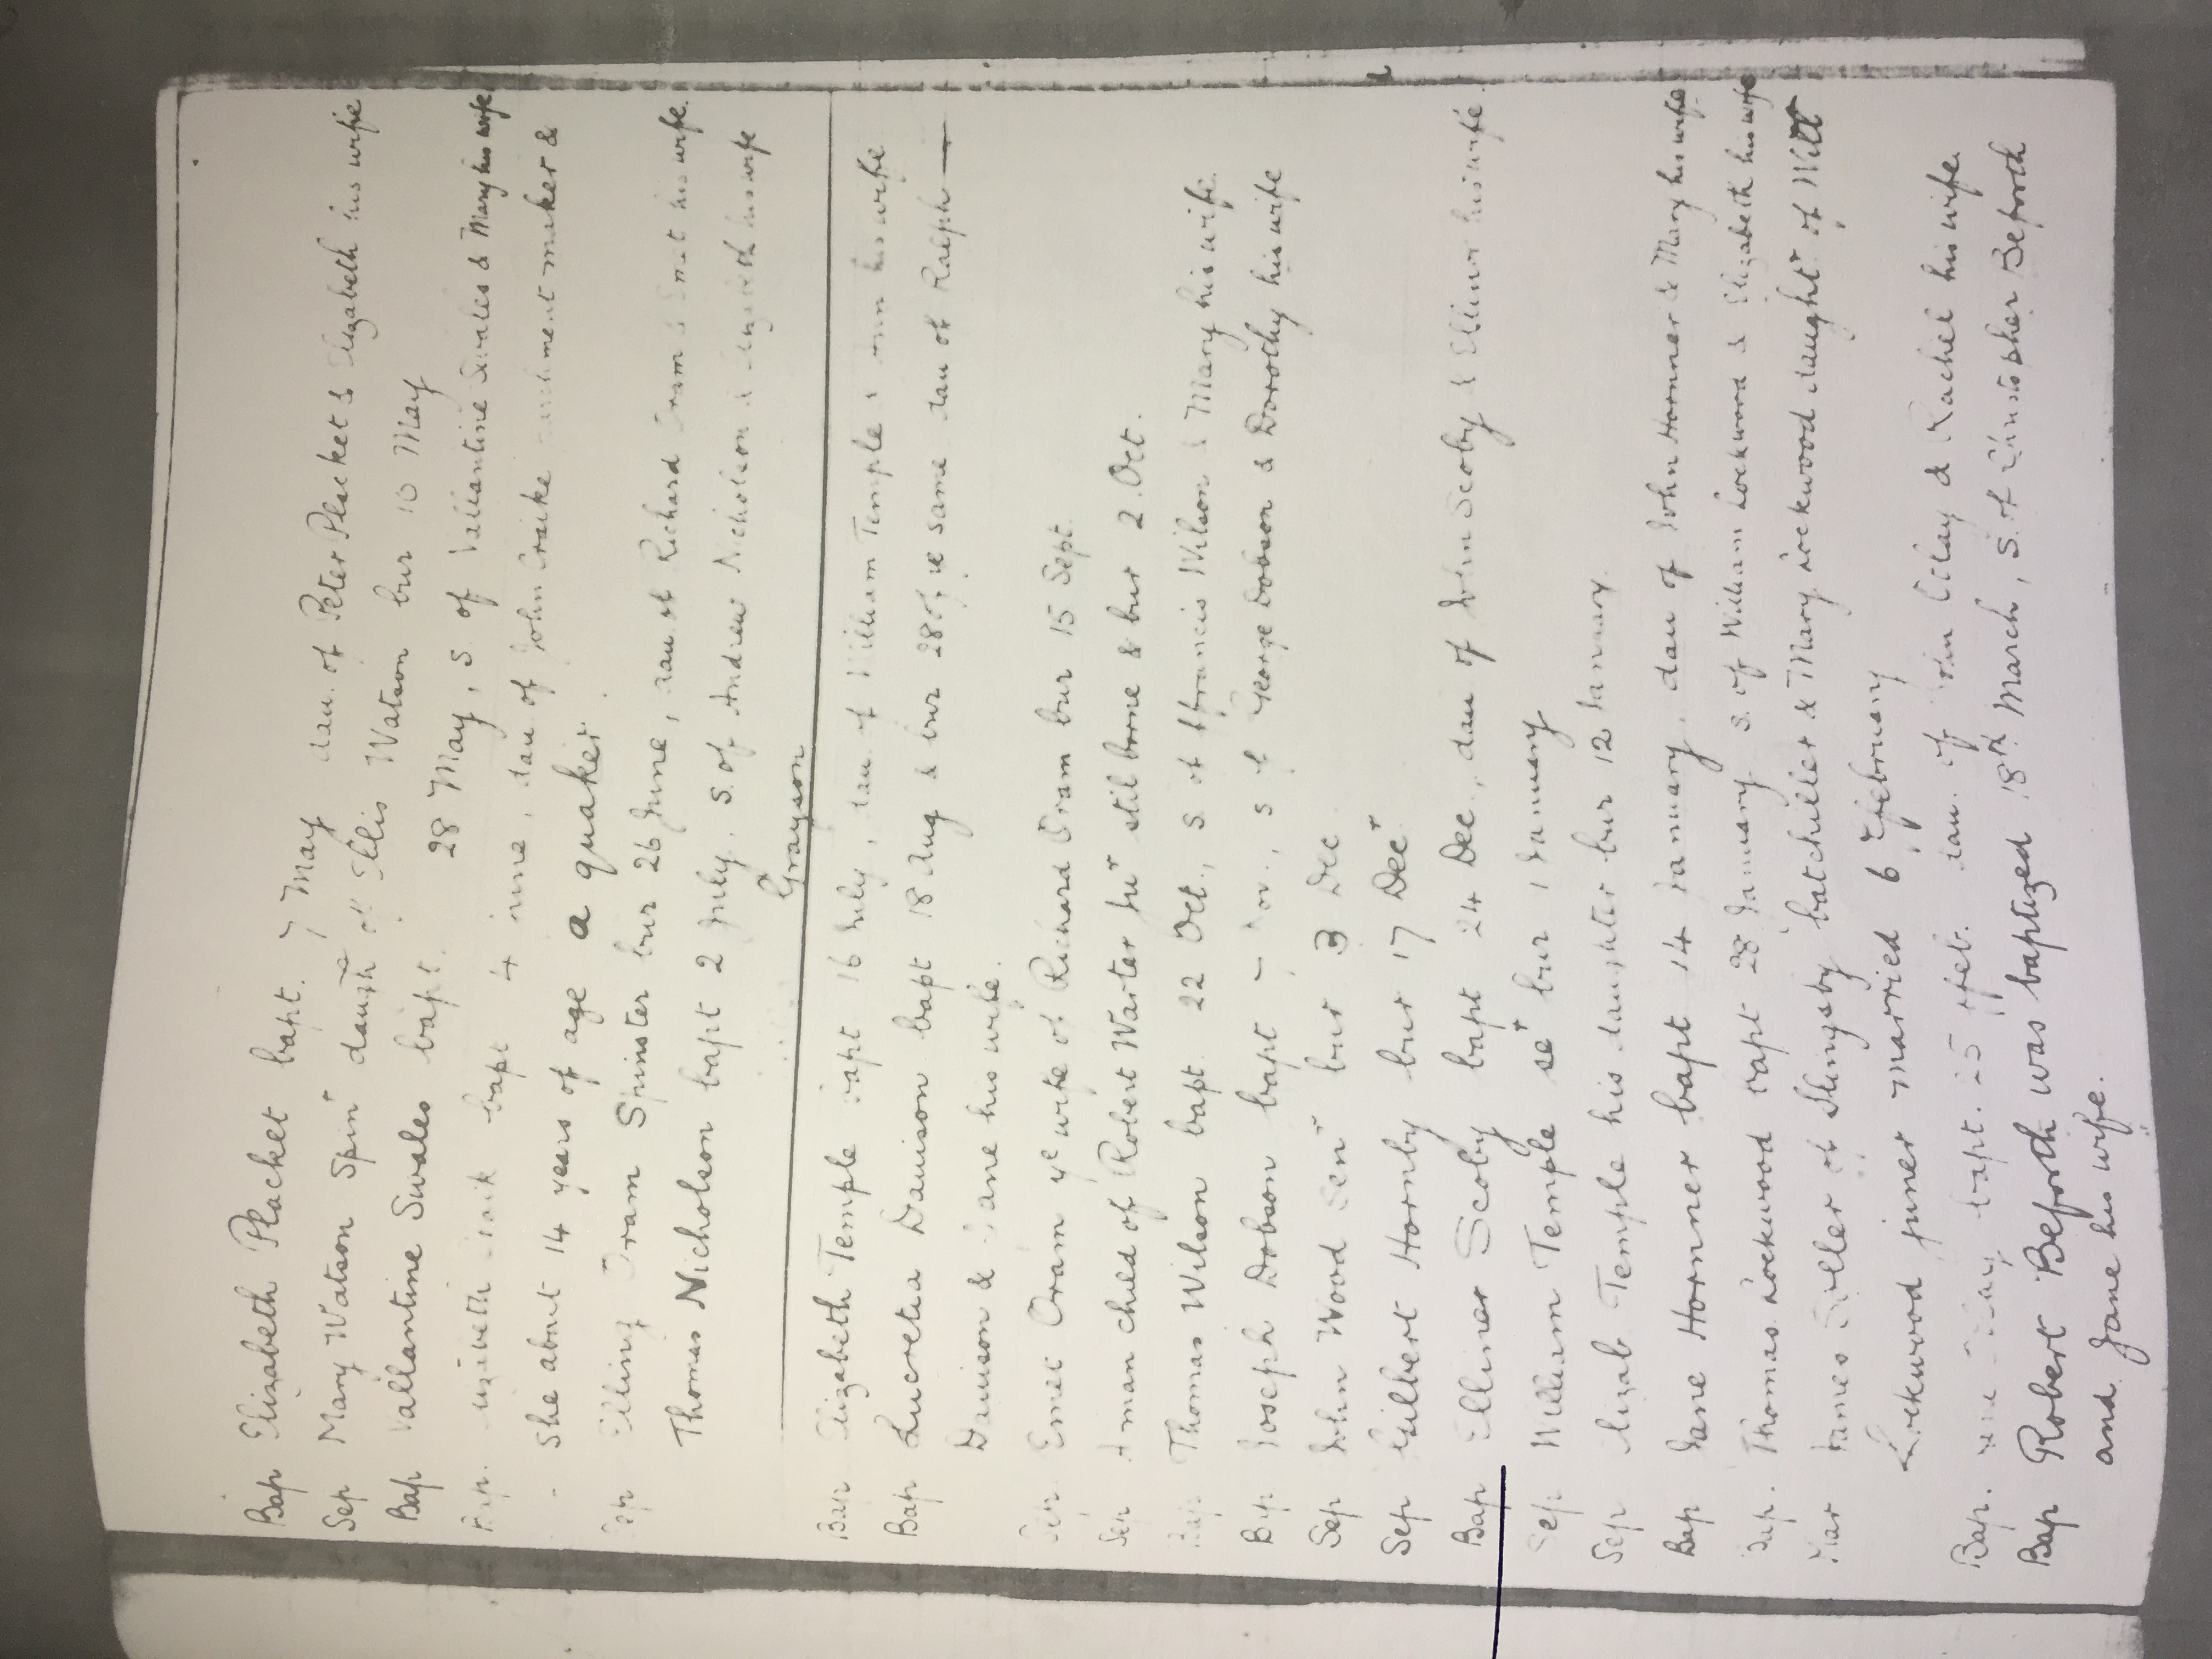 Bap Elizabeth Placket bapt. 7 May dau. of Peter Placket & Elizabeth his wife
Sep Mary Watson Spinr daught of Ellis Watson bur 10 May
Bap Vallantine Swales bapt. 28 May, S. of Vallantine Swales & Mary his wife
Bap. Elizabeth Craik bapt 4 June, dau of John Craike parchment maker &
She about 14 years of age a quaker.
Sep Elling Oram Spinster bur 26 June, dau of Richard Oram & his wife.
Thomas Nicholson bapt 2 July. S. of Andrew Nicholson & Elizabeth his wife
Grayson
Bap Elizabeth Temple bapt 16 July, dau of William Temple & Ann his wife
Bap Lucretia Davison bapt 18 Aug & bur 28 of ye same dau of Ralph
Davison & Jane his wife.
Sep Emet Oram ye wife of Richard Oram bur 15 Sept.
Sep A man child of Robert Warter Junr stil borne & bur 2 Oct.
Bap Thomas Wilson bapt. 22 Oct., S. of ffrancis Wilson & Mary his wife.
Bap Joseph Dobson bapt Nov., S of George Dobson & Dorothy his wife
Sep John Wood Senr bur 3 Dec.
Sep Gilbert Hornby bur 17 Decr
Bap Elliner Scoby bapt 24 Dec., dau of John Scoby & Ellinor his wife.
Sep William Temple Ser bur 1 January
Sep Elizab. Temple his daughter bur 12 January.
Bap Jane Hornner bapt 14 January, dau of John Hornner & Mary his wife
Bap. Thomas Lockwood bapt 28 January S. of William Lockwood & Elizabeth his wife
Mar James of Slingsby batchiller & Mary Lockwood daughtr of Will
Lockwood juner married 6 ffebruary
Bap. bapt. 25 ffeb. dau. of John Cilay & Rachel his wife.
Bap Robert Beforth was baptized 18th March, S. of Christopher Beforth
and Jane his wife.